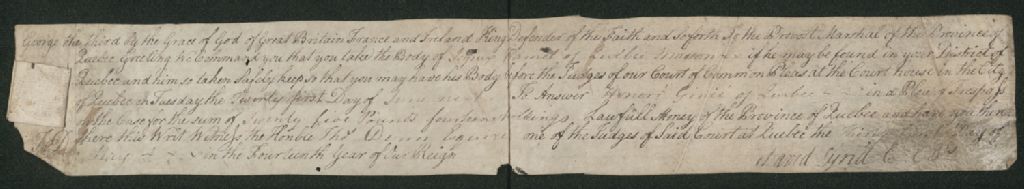 George the Third by the Grace of God of Great Britain France and Ireland King Defender of the Faith and so forth To the Provost Marshal of the Province of
Quebec Greeting We Command you that you take the Body of James of Quebec if he may be found in your District of
Quebec and him so taken Safely keep so that you may have his Body before the Judges of our Court of Common Pleas at the Court house in the City
of Quebec on Tuesday the Twenty first Day of June next To Answer of Quebec in a Plea of Trespass
on the Case for the sum of Twenty five Pounds fourteen Shillings Lawfull Money of the Province of Quebec and have you then
there this Writ Witness the Honble Thos Dunn Esquire one of the Judges of Said Court at Quebec the Day of
May in the Fourteenth Year of Our Reign
David Lynd